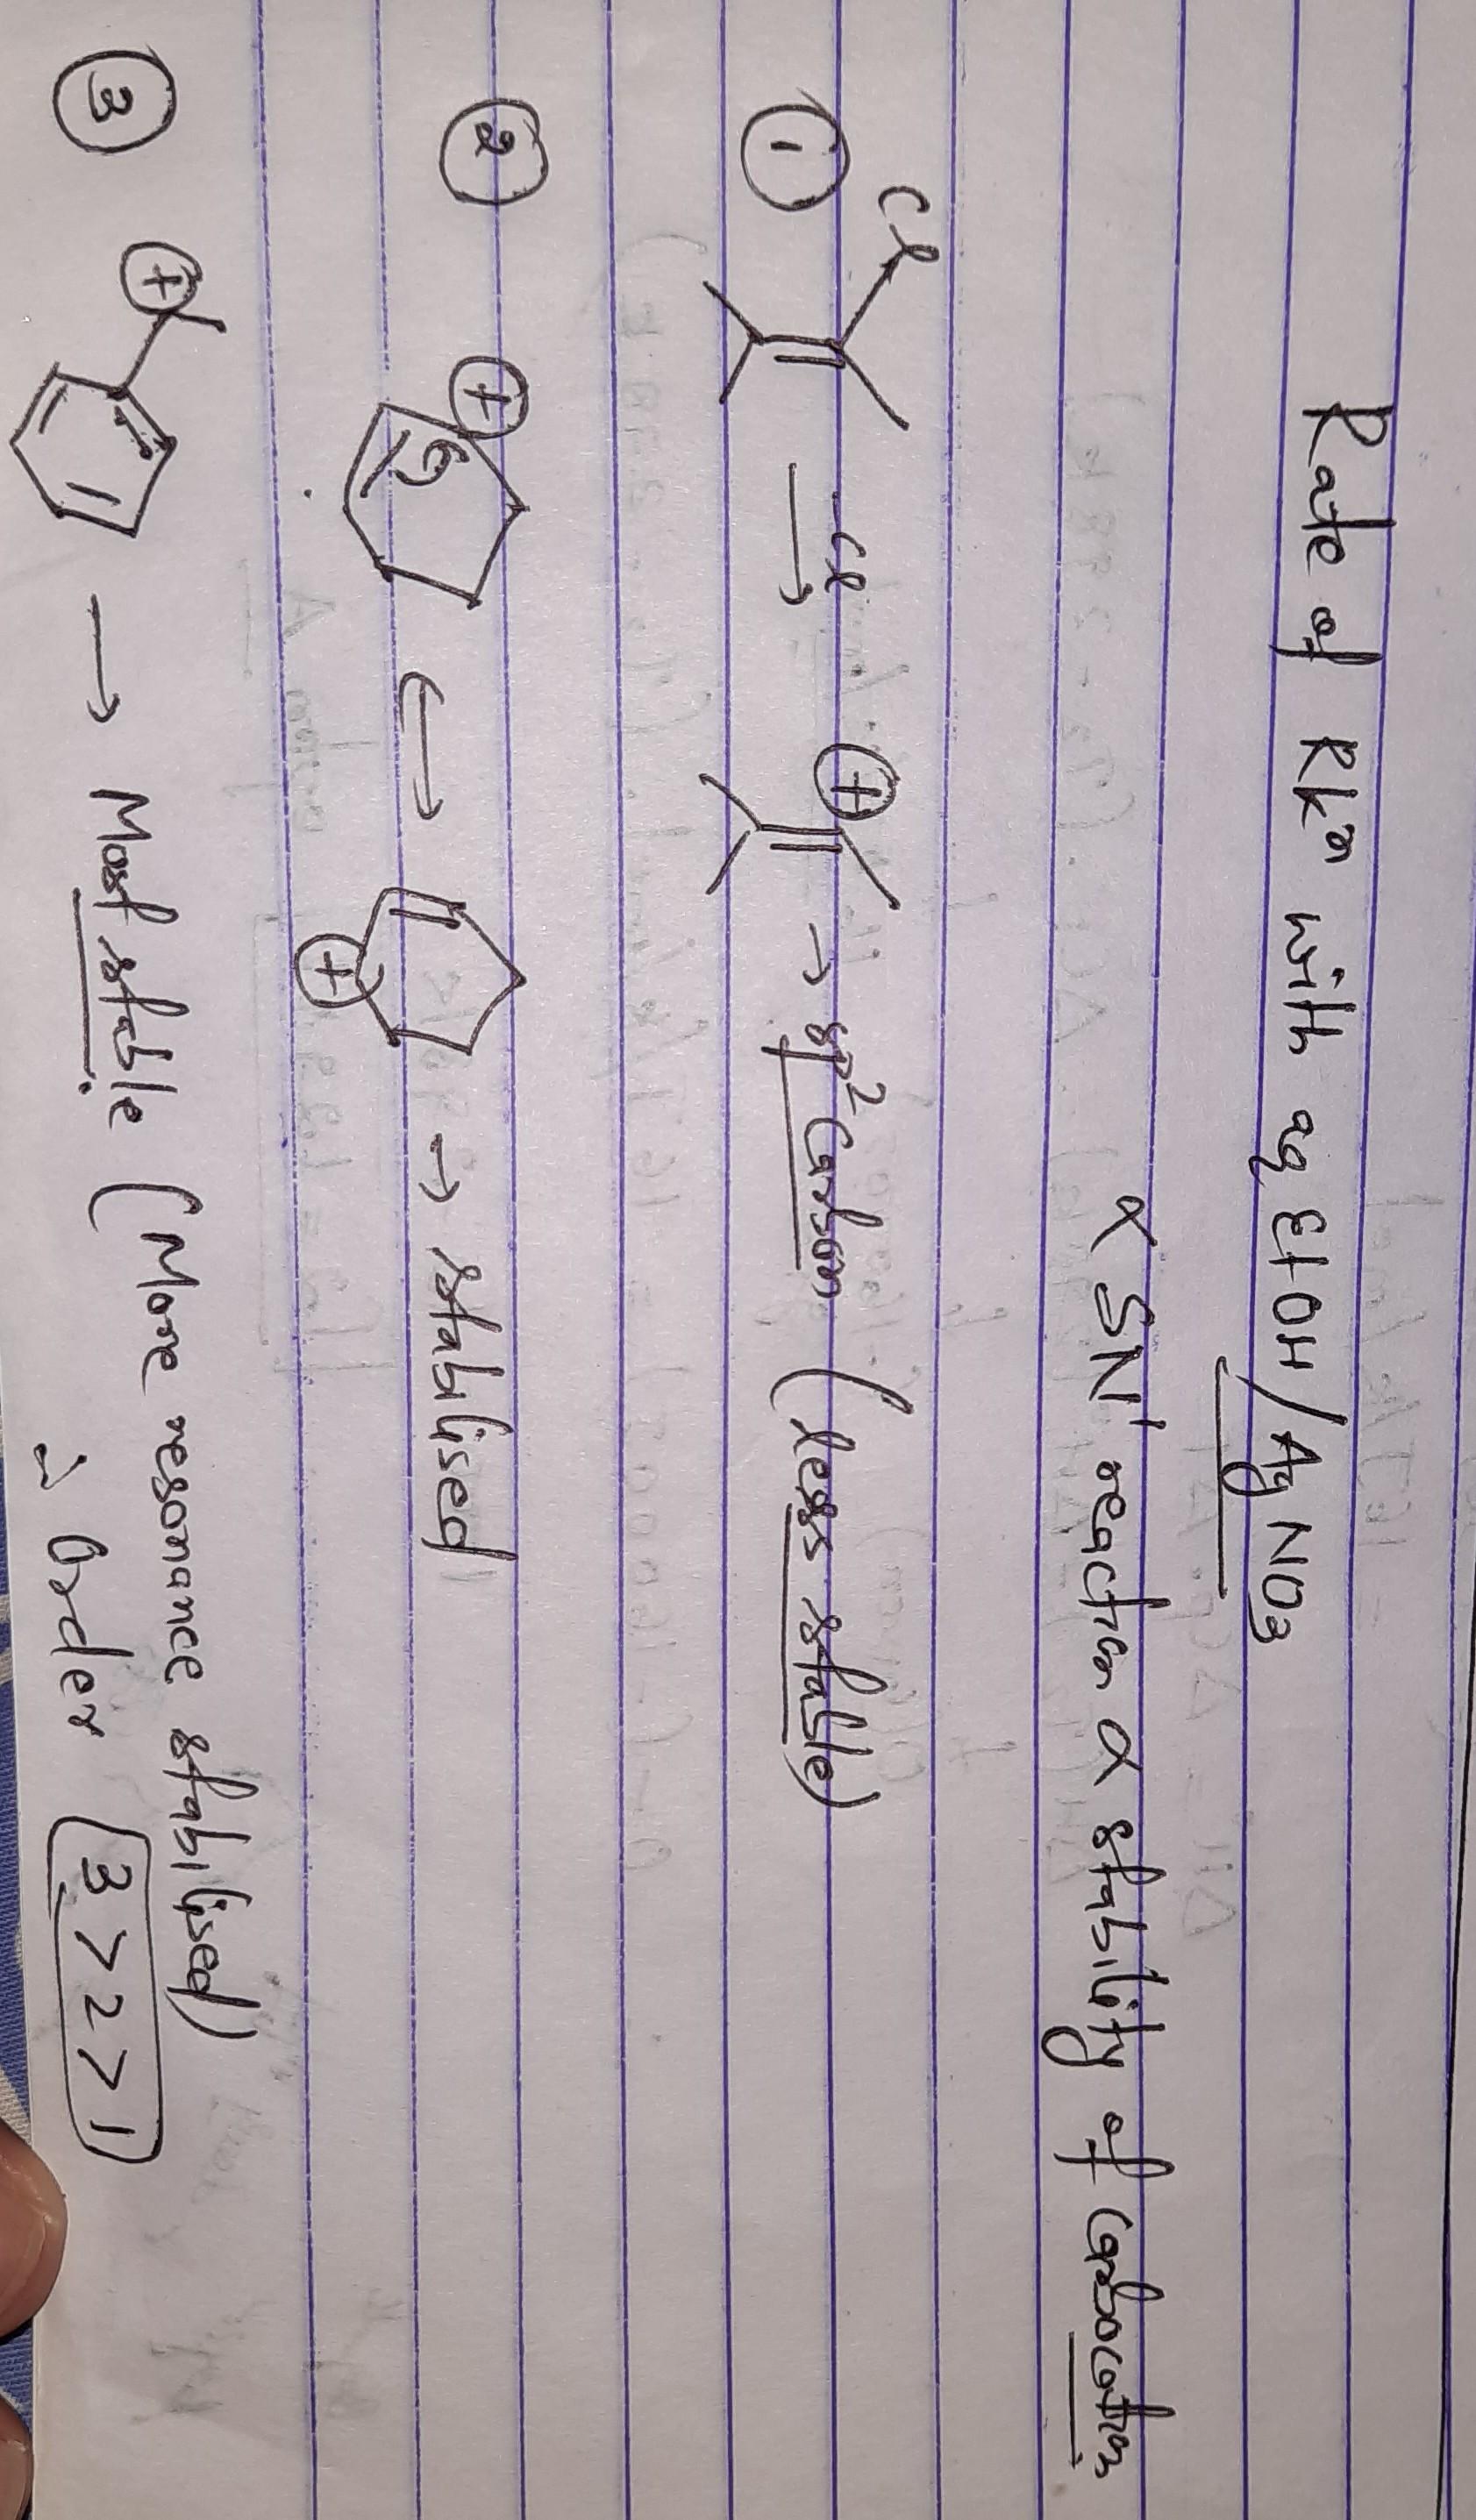 Rate of Rkⁿ with aq EtOH/AgNO3
α SN¹ reaction α stability of Carbocation
① Cl -Cl ⟶ ⊕ → sp² Carbon (less stable)
② ⊕ ⟷ ⊕ → stabilised
③ ⊕ → Most stable (More resonance stabilised)
∴ Order 3 > 2 > 1